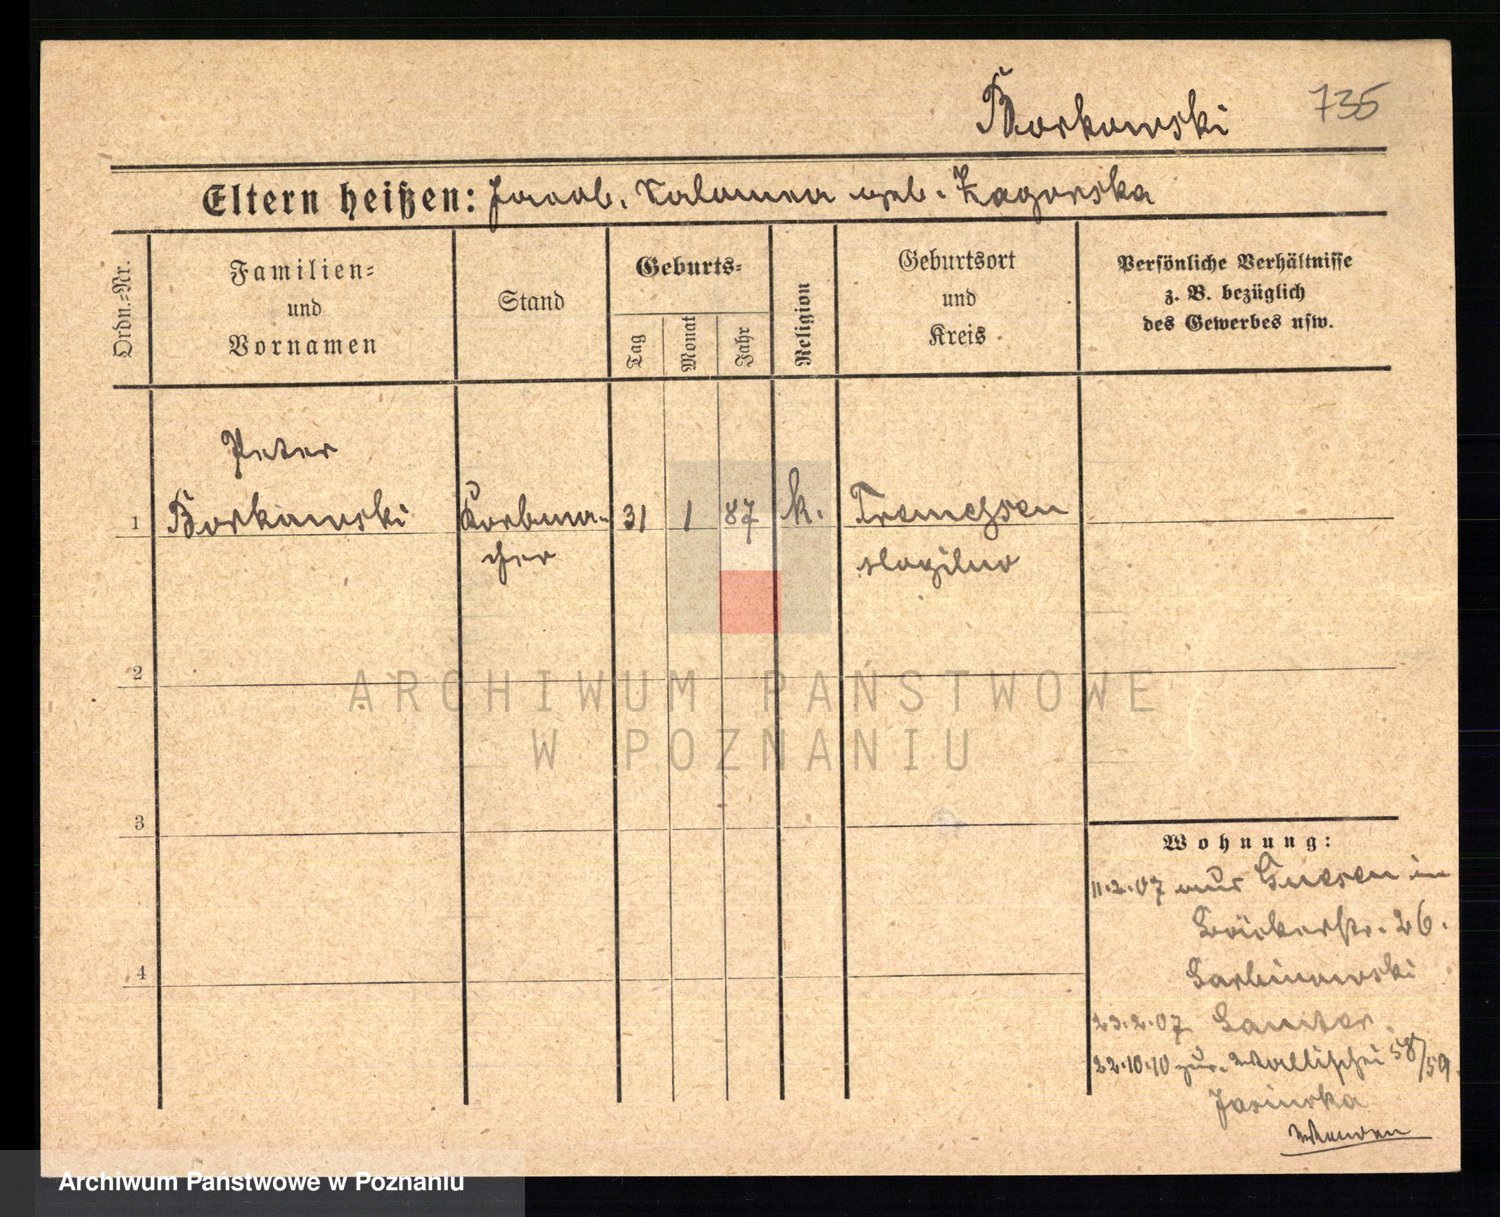 Borkowski
735
Eltern heißen: Jacob, Salomea geb. Zagorska
Ordn.-Nr.
Familien-
und
Vornamen
Stand
Geburts-
Tag
Monat
Jahr
Religion
Geburtsort
und
Kreis
Persönliche Verhältnisse
z. B. bezüglich
des Gewerbes usw.
Peter
1 Borkowski Korbma- 31 1 87 k. Tremessen
cher Mogilno
2
ARCHIWUM PAŃSTWOWE
W POZNANIU
3
Wohnung:
11.2.07 aus Gnesen in
Bäckerstr. 26.
Garbinowski
23.2.07
22.10.10 zur. Wallischei 58/59.
Jasinska
Wenden
4
Archiwum Państwowe w Poznaniu